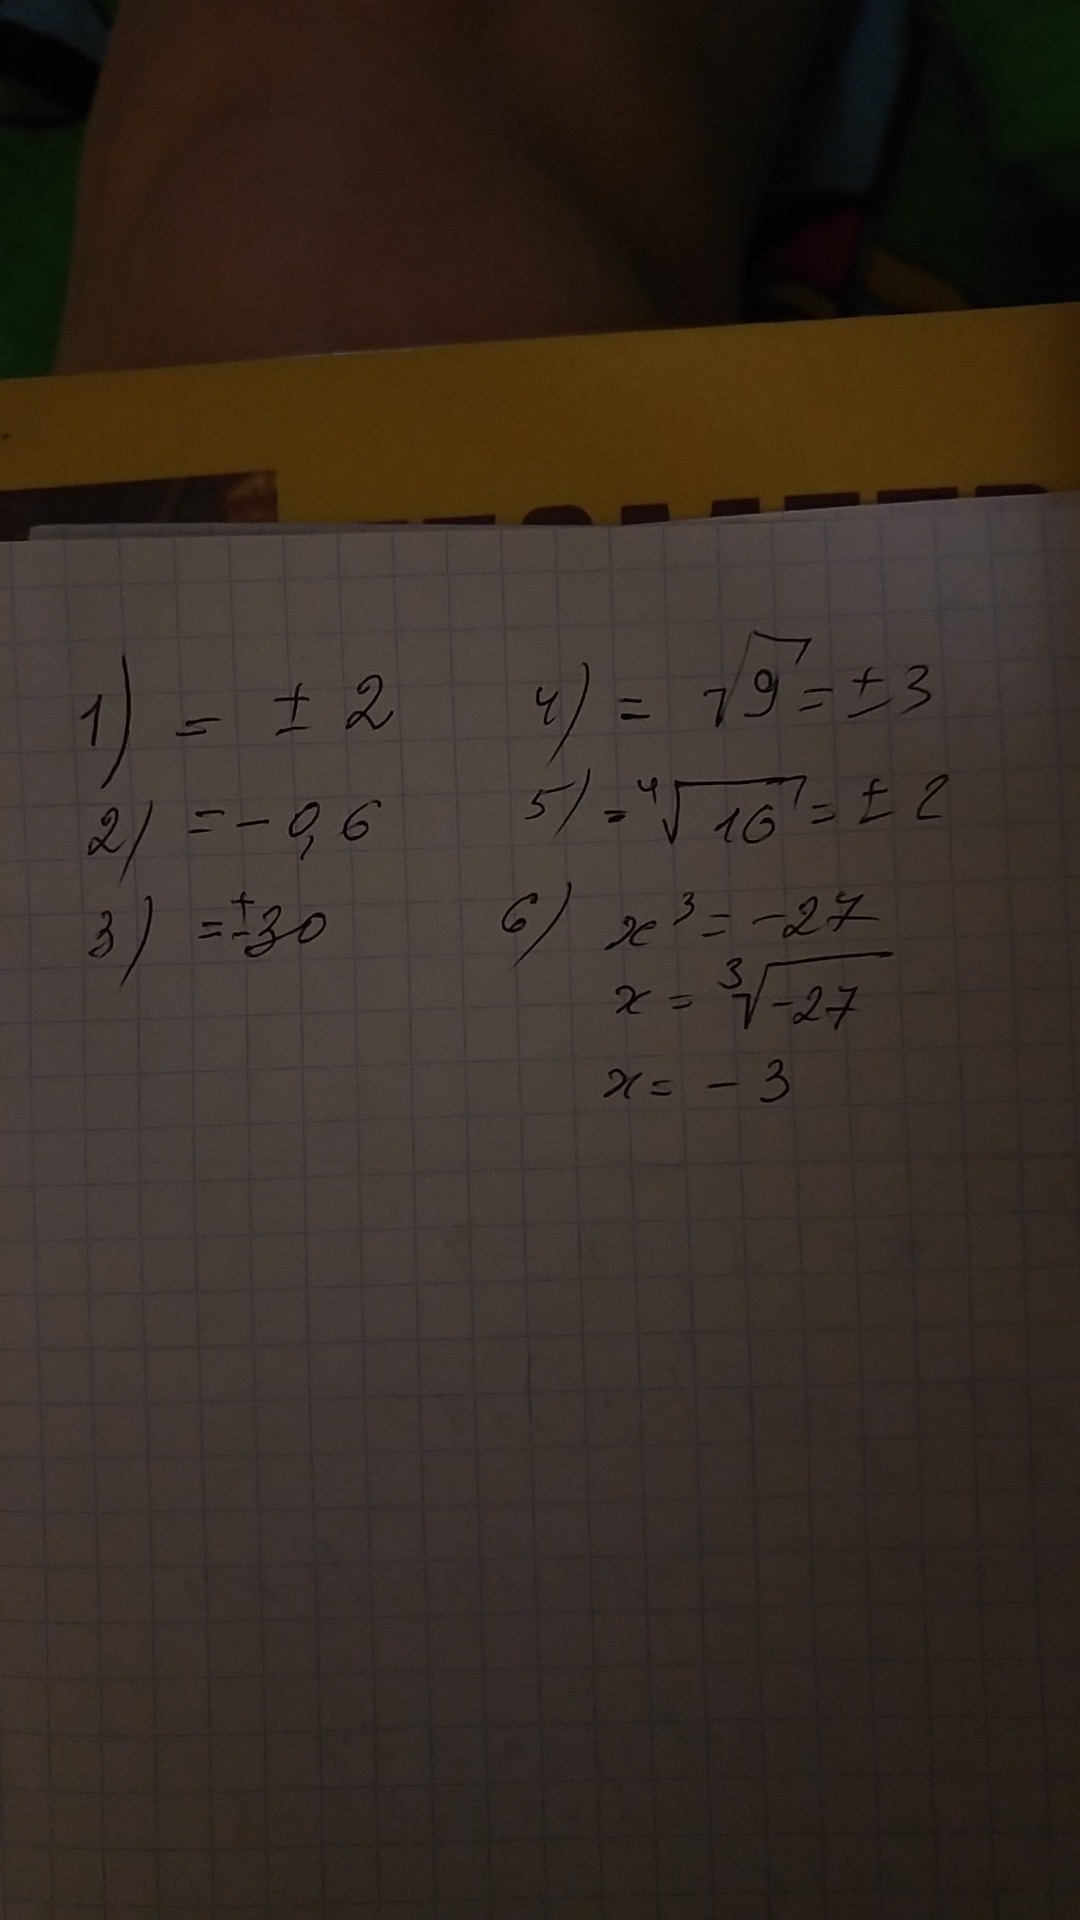 1) = ± 2
2) = - 0,6
3) = ±30
4) = √9 = ±3
5) = ⁴√16 = ± 2
6) x³ = -27
x = ³√-27
x = - 3